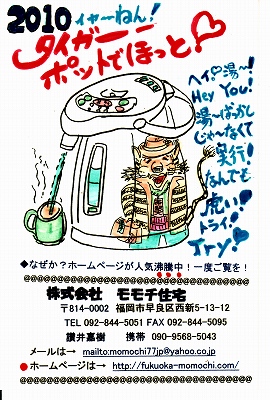 2010 イヤーねん!
タイガー
ポットでほっと!
ヘイ♡湯〜!
Hey You!
湯〜ばっかし
じゃ〜なくて
実行!
なんでも
虎い!
トライ!
Try!
◆なぜか?ホームページが人気沸騰中!一度ご覧を!
@@@@@@@@@@@@@@@@@@@@@@@@@@@@@@
株式会社 モモチ住宅
〒814-0002 福岡市早良区西新5-13-12
TEL 092-844-5051 FAX 092-844-5095
讃井嘉樹 携帯 090-9568-5043
メールは→ mailto:momochi77jp@yahoo.co.jp
●ホームページは→ http://fukuoka-momochi.com/
@@@@@@@@@@@@@@@@@@@@@@@@@@@@@@